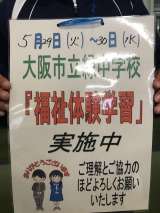 5月29日(火)〜30日(水)
大阪市立緑中学校
『福祉体験学習』
実施中
ありがとうございます
ご理解とご協力の
ほどよろしくお願い
いたします